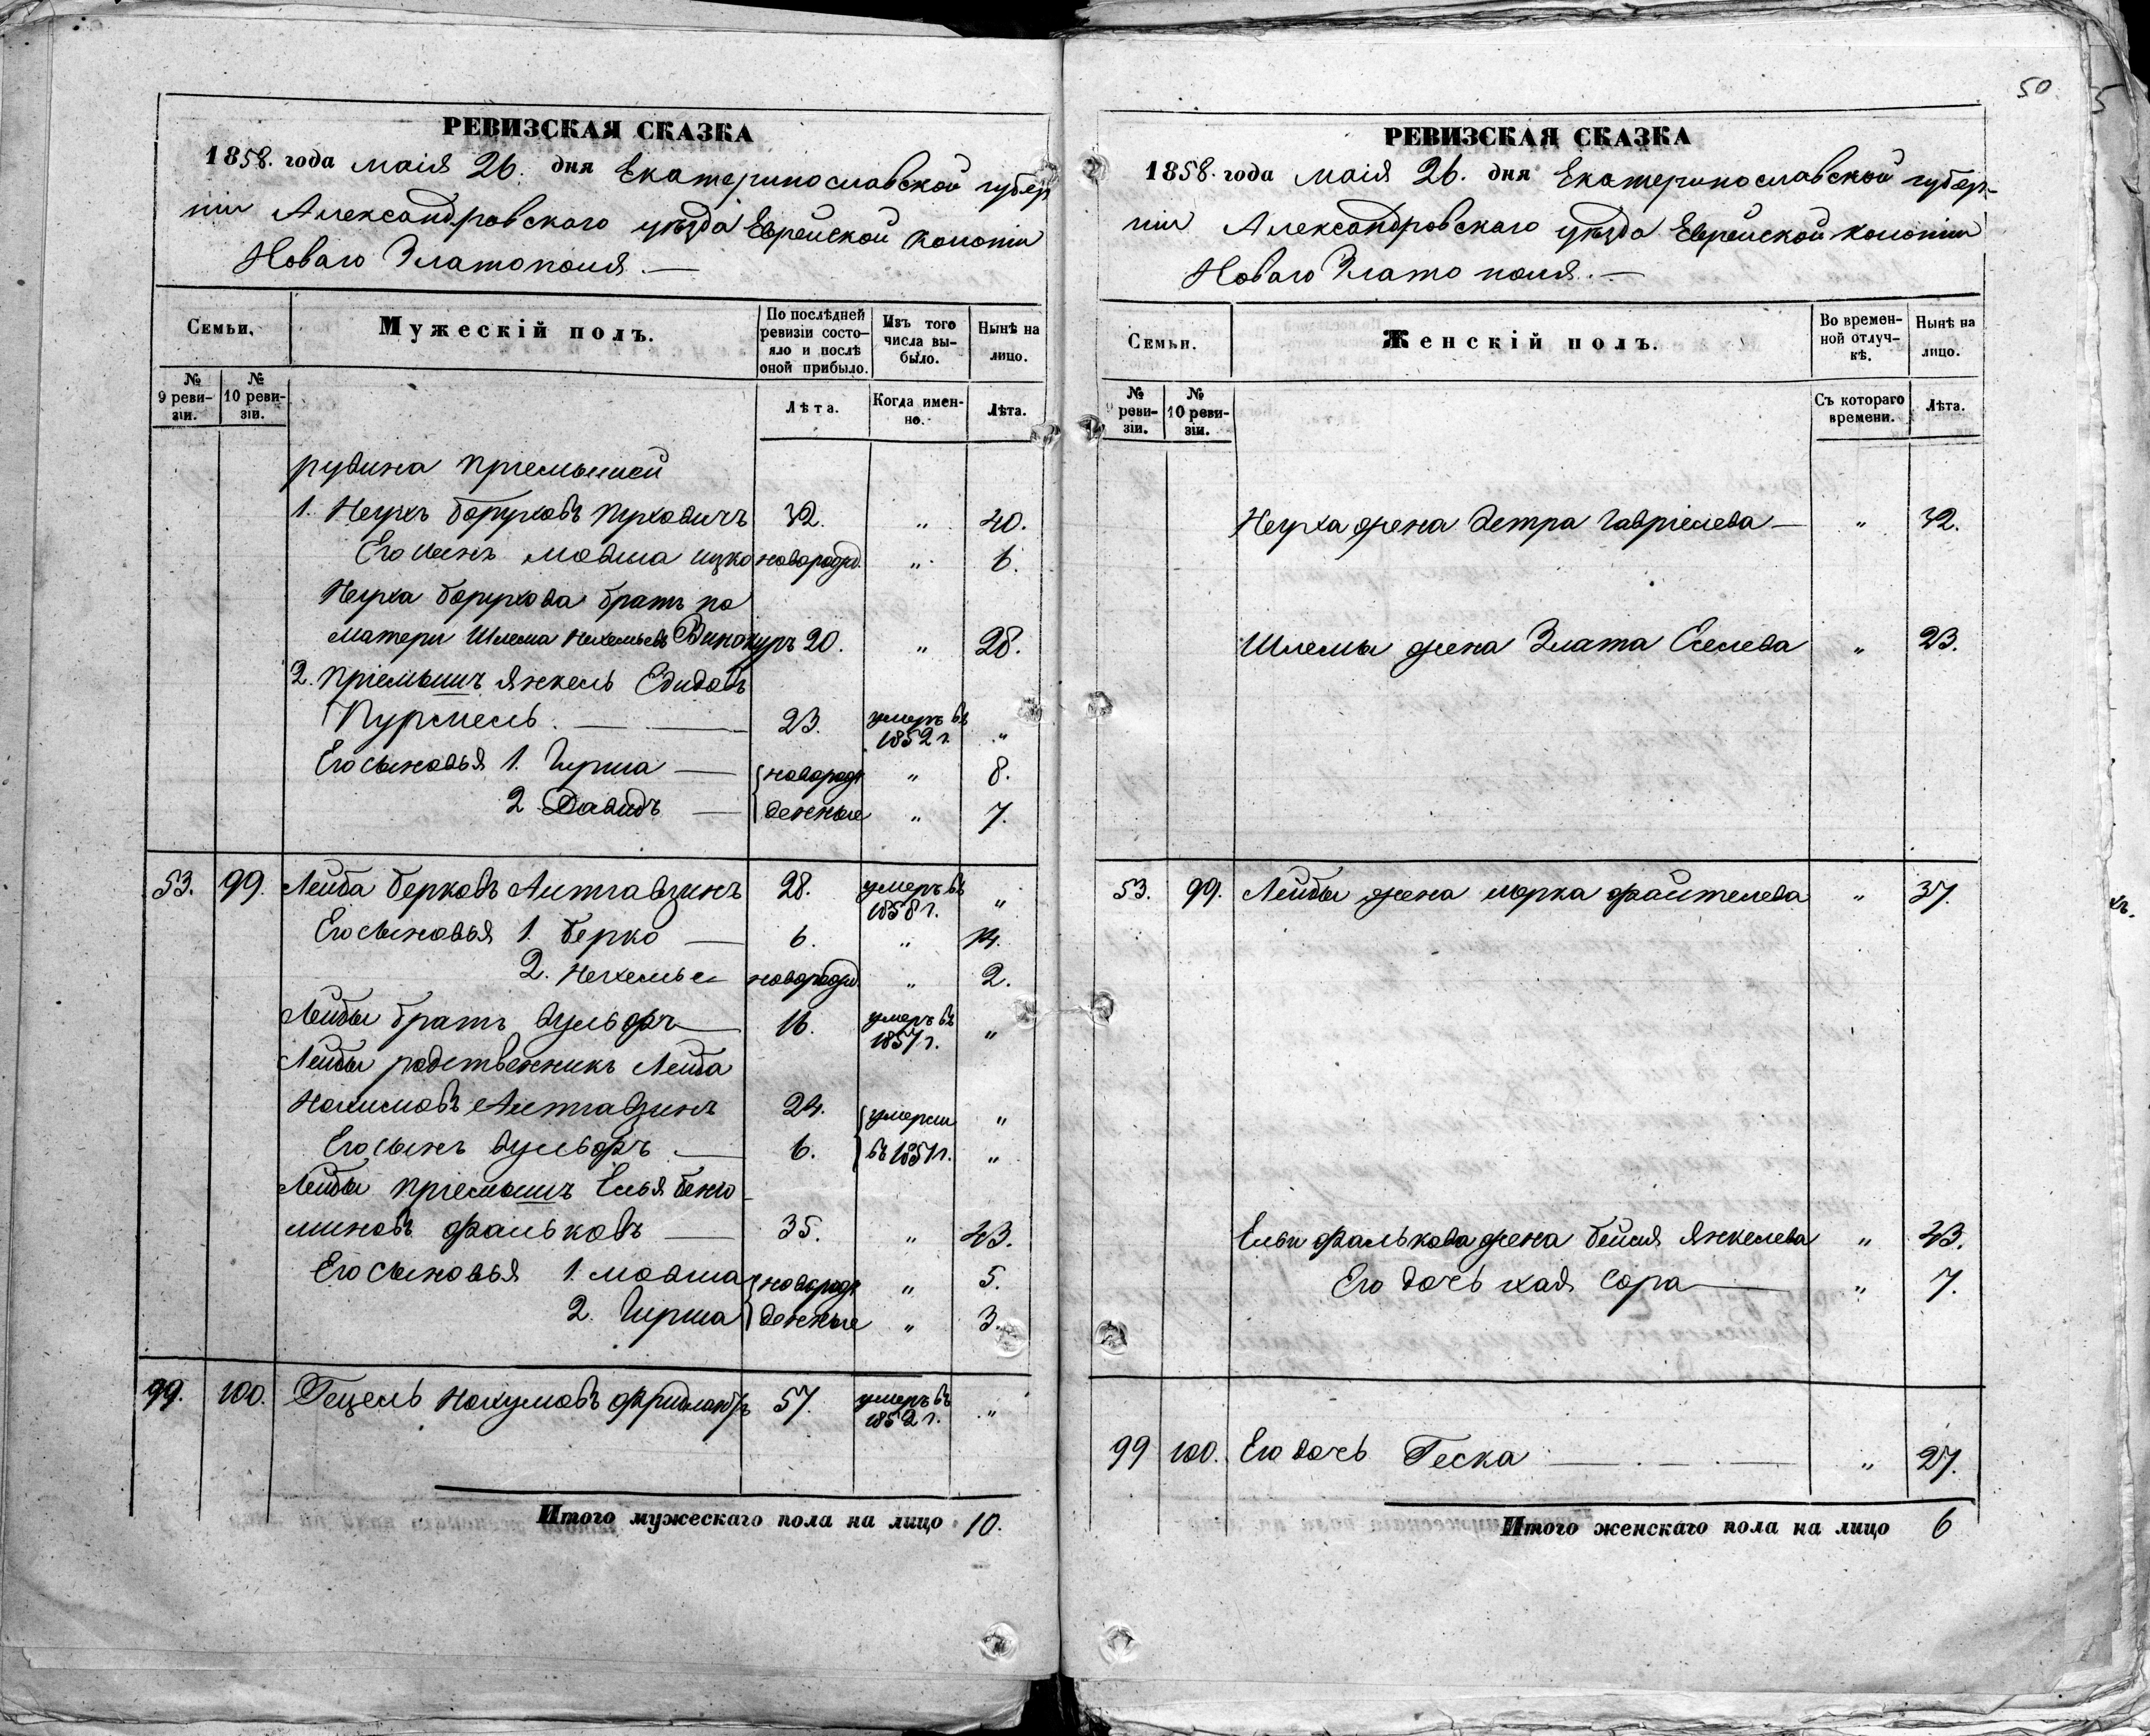 50
РЕВИЗСКАЯ СКАЗКА
1858. года маія 26. дня Екатеринославской губер
ніи Александровскаго уѣзда Еврейской колоніи
Новаго Златополя. —
Семьи,
Мужескій полъ.
По послѣдней ревизіи состояло и послѣ оной прибыло.
Изъ того числа выбыло.
Нынѣ на лицо.
№ 9 ревизіи.
№ 10 ревизіи.
Лѣта.
Когда именно.
Лѣта.
рудина пріемышей
1. Неухъ Боруховъ 32. " 40.
Его сынъ Мовша Ицко новорожд. " 6.
Неуха Борухова братъ по
матери Шлема Нехемьевъ Винокуръ 20. " 28.
2. Пріемышъ Янкель
23. умеръ въ 1852 г. "
Его сыновья 1. Гирша — новорож " 8.
2 Давидъ — денные " 7.
53. 99. Лейба Берковъ 28. умеръ въ 1858 г. "
Его сыновья 1. Берко — 6. " 14.
2. Нехемье новорожд " 2.
Лейбы братъ Вульфъ — 16. умеръ въ 1857 г. "
Лейбы родственникъ Лейба
24. умерли "
Его сынъ Вульфъ — 6. въ 1851 г. "
Лейбы пріемышъ Елья Беню
миновъ Фальковъ — 35. " 43.
Его сыновья 1. Мовша новорож " 5.
2. Гирша денные " 3.
99. 100. Гецель Нохумовъ Фридлантъ 57. умеръ въ 1852 г. "
Итого мужескаго пола на лицо 10.
РЕВИЗСКАЯ СКАЗКА
1858. года маія 26. дня Екатеринославской губер-
ніи Александровскаго уѣзда Еврейской колоніи
Новаго Злато поля. —
Семьи.
Женскій полъ.
Во временной отлучкѣ.
Нынѣ на лицо.
№ ревизіи.
№ 10 ревизіи.
Съ котораго времени.
Лѣта.
Неуха жена Гавріелева — " 32.
Шлемы жена Злата Еселева " 23.
53. 99. Лейбы жена Файтелева " 37.
Ельи Фалькова жена Бейля Янкелева " 43.
Его дочь Хая Сора — " 7.
99 100. Его дочь Геска — " 27.
Итого женскаго пола на лицо 6